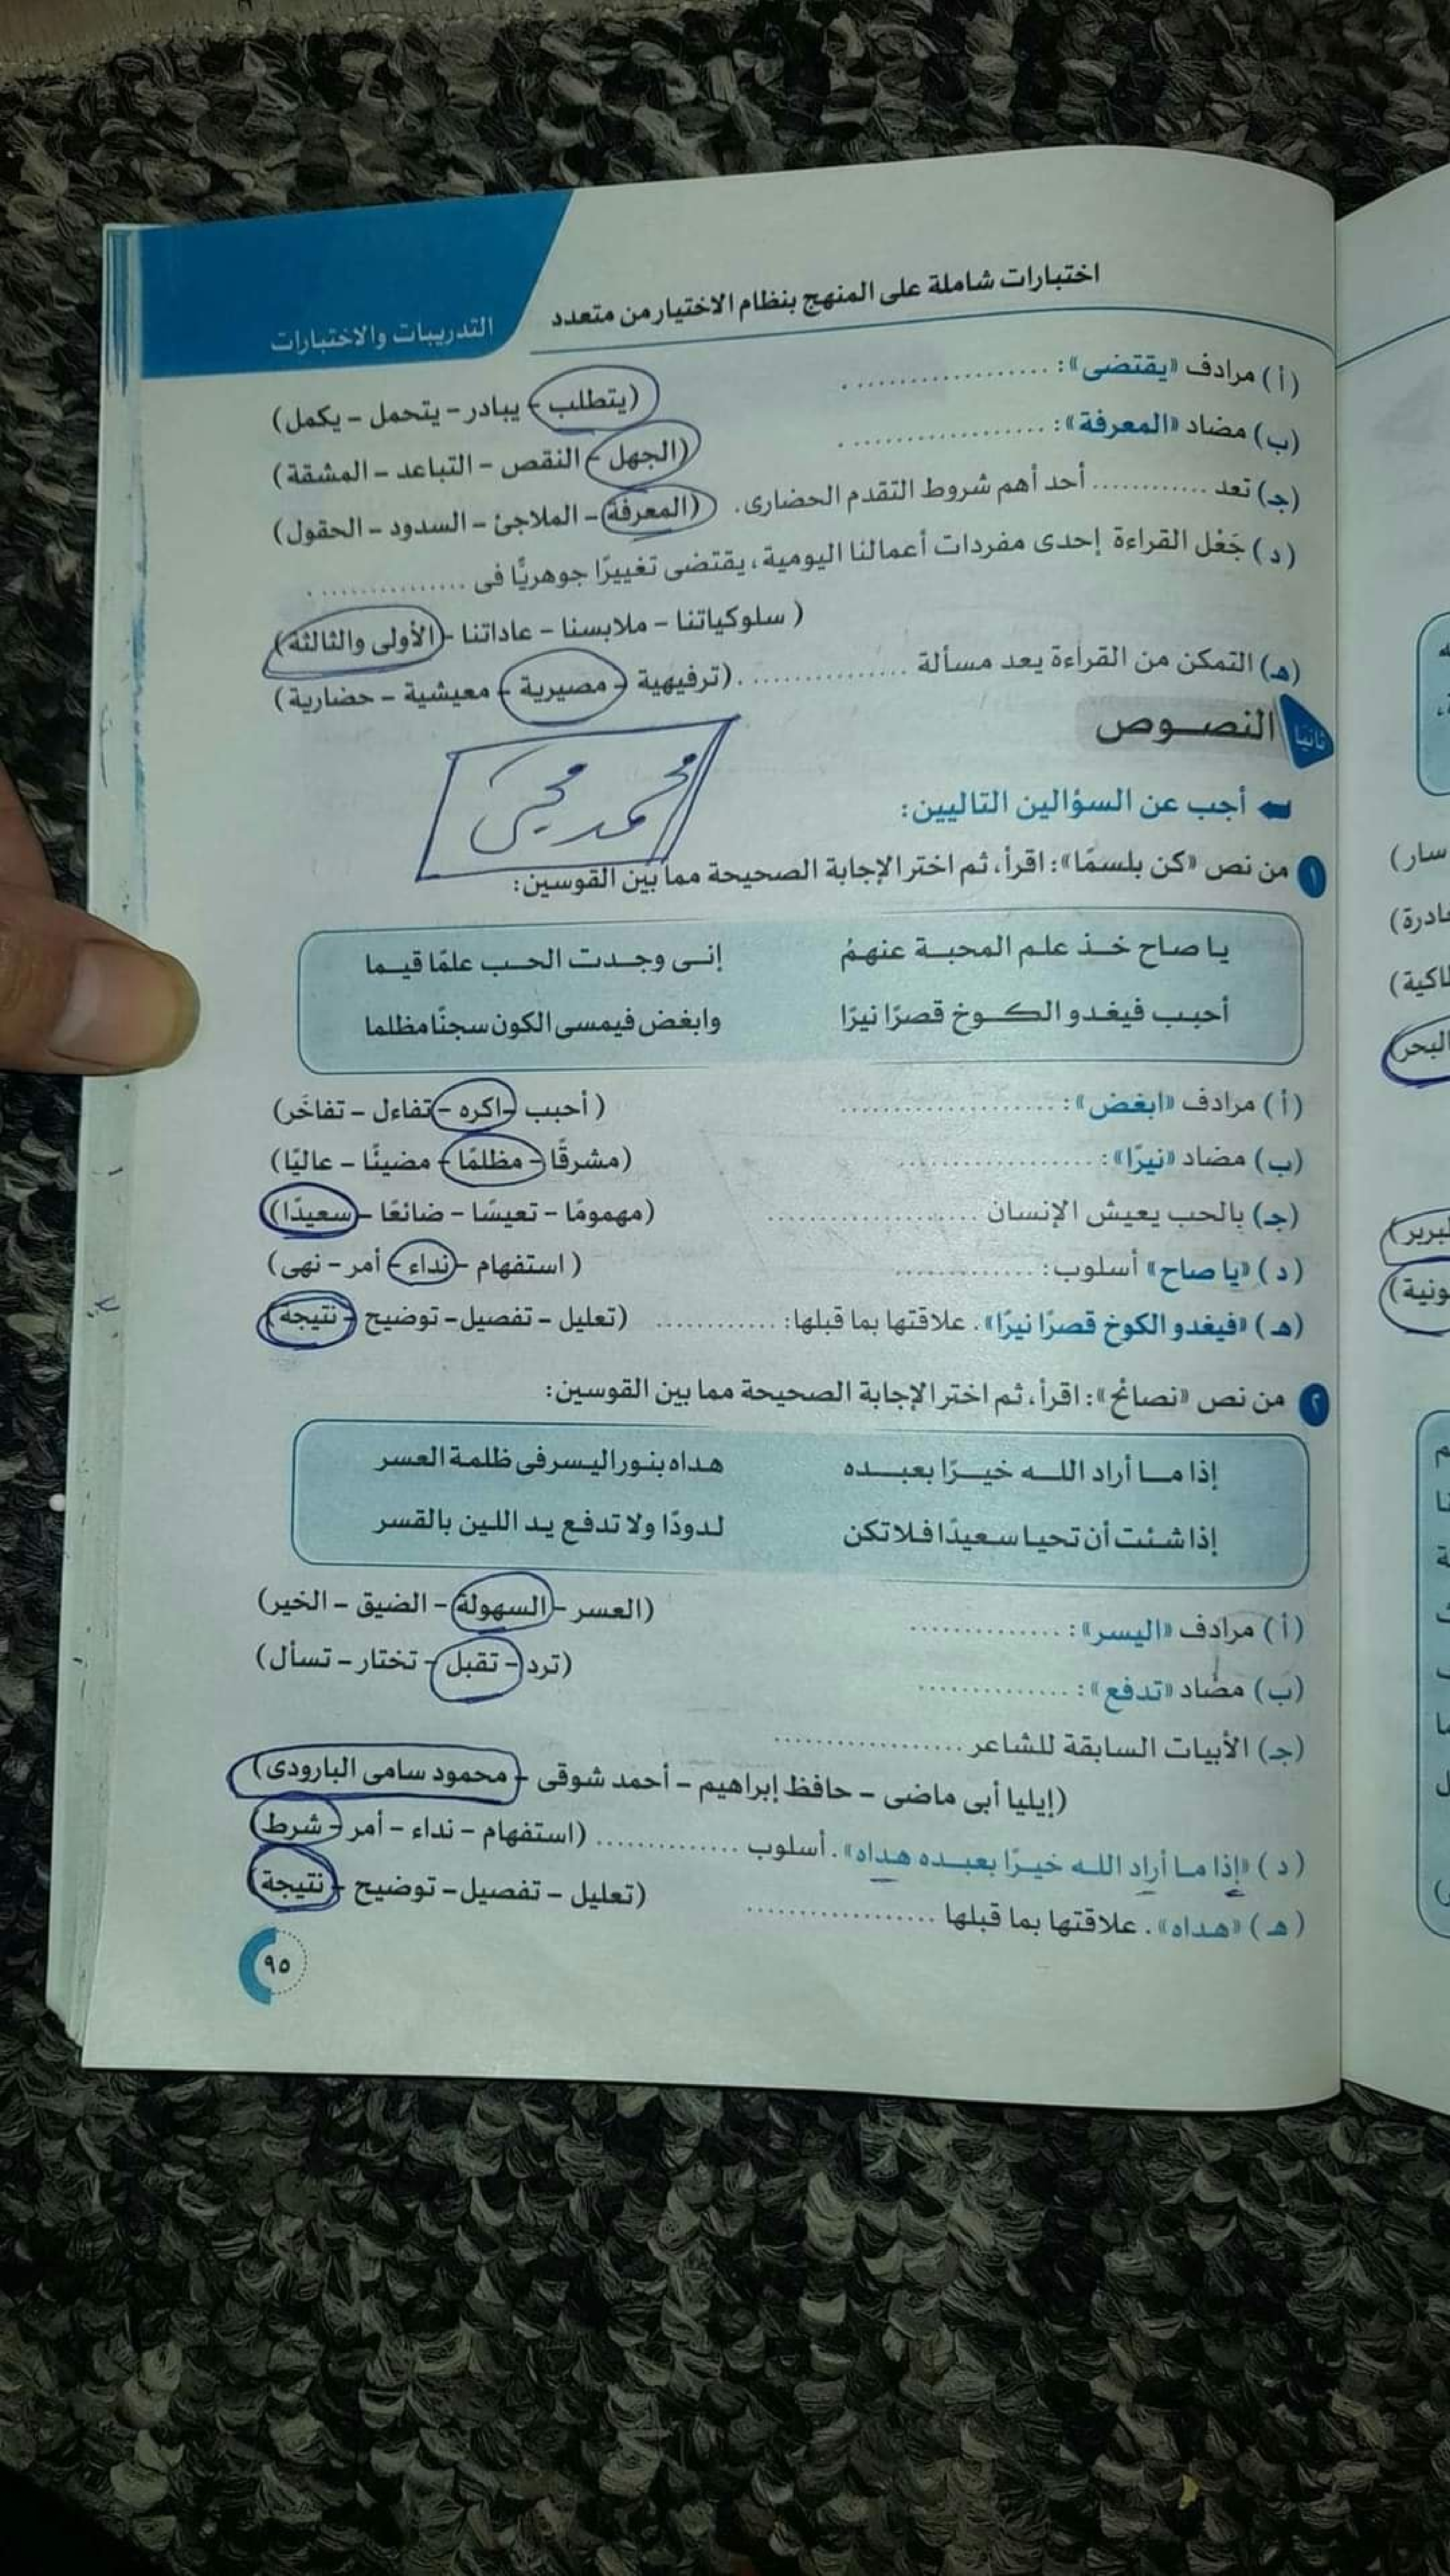 اختبارات شاملة على المنهج بنظام الاختيار من متعدد
التدريبات والاختبارات
(أ) مرادف «يقتضى»: .................. .
(يتطلب – يبادر – يتحمل – يكمل)
(ب) مضاد «المعرفة»: .................. .
(الجهل – النقص – التباعد – المشقة)
(جـ) تعد ............ أحد أهم شروط التقدم الحضارى. (المعرفة – الملاجئ – السدود – الحقول)
(د) جَعْل القراءة إحدى مفردات أعمالنا اليومية، يقتضى تغييرًا جوهريًّا فى .............. .
( سلوكياتنا – ملابسنا – عاداتنا – الأولى والثالثة)
(هـ) التمكن من القراءة يعد مسألة .............. . (ترفيهية – مصيرية – معيشية – حضارية)
ثانيًا النصوص
محمد محيى
أجب عن السؤالين التاليين:
١ من نص «كن بلسمًا»: اقرأ، ثم اختر الإجابة الصحيحة مما بين القوسين:
يا صاح خذ علم المحبة عنهمُ إنى وجدت الحب علمًا قيما
أحبب فيغدو الكوخ قصرًا نيرًا وابغض فيمسى الكون سجنًا مظلما
(أ) مرادف «ابغض»: .................... ( أحبب – اكره – تفاءل – تفاخَر)
(ب) مضاد «نيرًا»: .................. (مشرقًا – مظلمًا – مضيئًا – عاليًا)
(جـ) بالحب يعيش الإنسان .................... (مهمومًا – تعيسًا – ضائعًا – سعيدًا)
(د) «يا صاح» أسلوب: ............. ( استفهام – نداء – أمر – نهى)
(هـ) «فيغدو الكوخ قصرًا نيرًا». علاقتها بما قبلها: ............ (تعليل – تفصيل – توضيح – نتيجة)
٢ من نص «نصائح»: اقرأ، ثم اختر الإجابة الصحيحة مما بين القوسين:
إذا ما أراد الله خيرًا بعبده هداه بنور اليسر فى ظلمة العسر
إذا شئت أن تحيا سعيدًا فلا تكن لدودًا ولا تدفع يد اللين بالقسر
(أ) مرادف «اليسر»: .............. (العسر – السهولة – الضيق – الخير)
(ب) مضاد «تدفع»: .............. (ترد – تقبل – تختار – تسأل)
(جـ) الأبيات السابقة للشاعر ..................
(إيليا أبى ماضى – حافظ إبراهيم – أحمد شوقى – محمود سامى البارودى)
(د) «إذا ما أراد الله خيرًا بعبده هداه». أسلوب .............. (استفهام – نداء – أمر – شرط)
(هـ) «هداه». علاقتها بما قبلها .................. (تعليل – تفصيل – توضيح – نتيجة)
٩٥